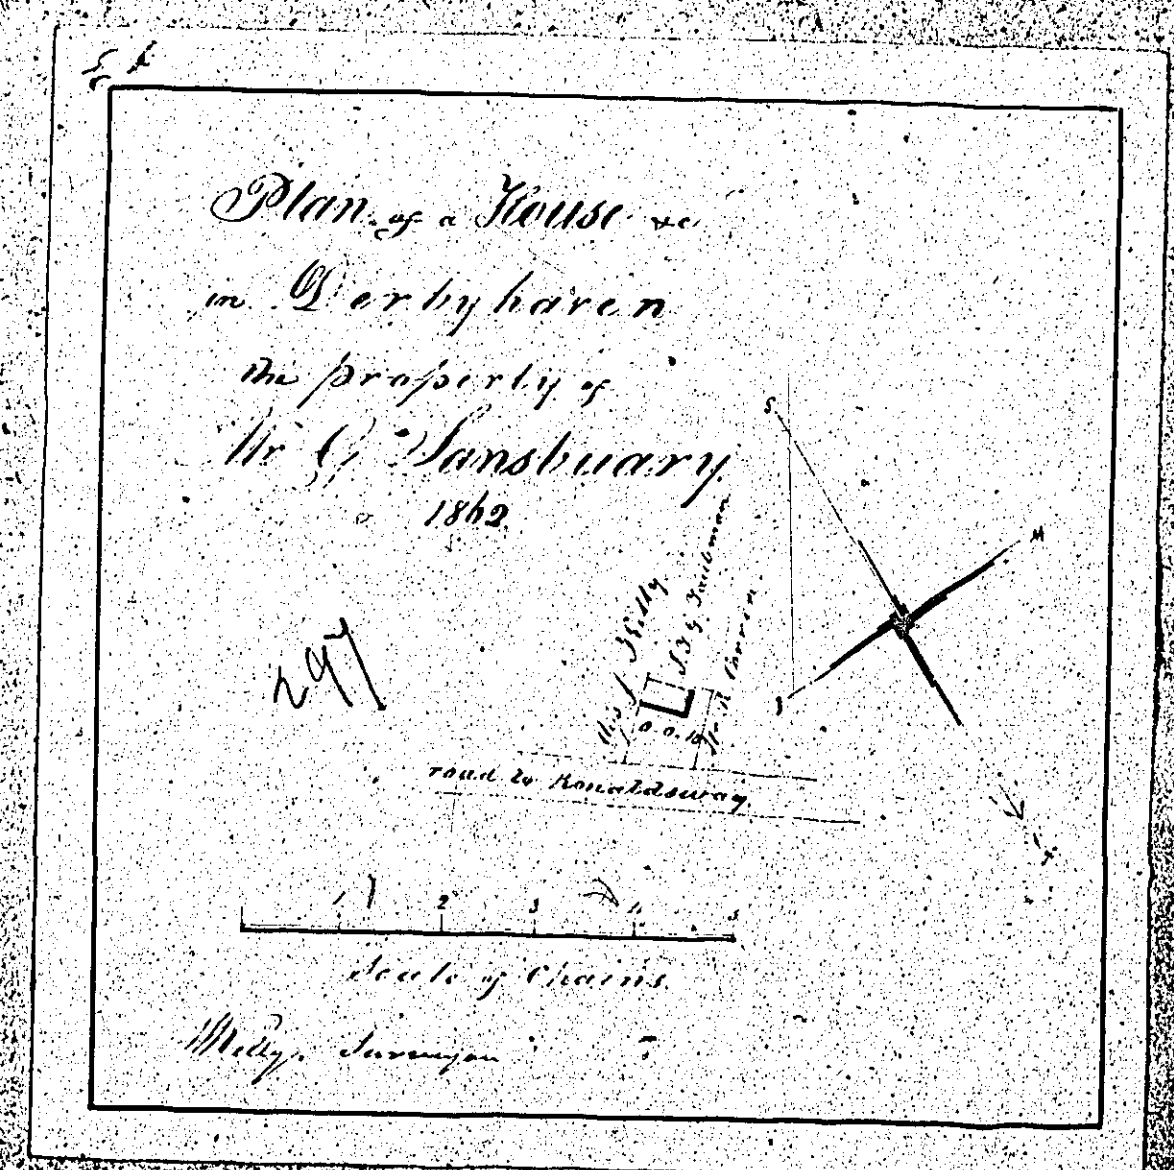 Plan of a House &c
in Derbyhaven
the property of
Mr G Sansbuary
1862
297
Kelly
J G Taubman
0.0.10
road to Ronaldsway
S
1 2 3 4 5
Scale of Chains
Surveyor